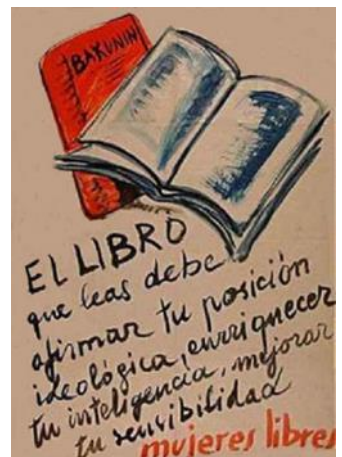 BAKUNIN
EL LIBRO
que leas debe
afirmar tu posición
ideológica, enrriquecer
tu inteligencia, mejorar
tu sensibilidad
mujeres libres